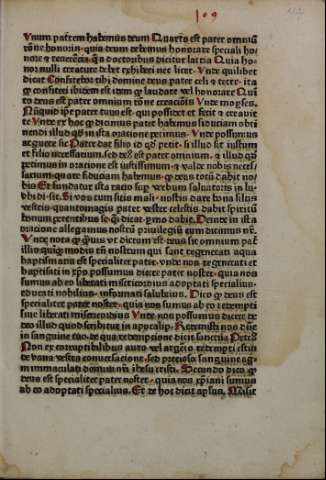 109
Vnum patrem habemus deum Quarto est pater omniū
rōne honorū quia deum debemus honorare speciali ho
nore & reuerēcia q̄ a doctoribus dicitur latria Quia ho
nor nulli creature debet exhiberi nec licet Vnde quilibet
dicat Confiteor tibi domine deus pater celi & terre ita
q̄ confiteri ibidem est idem q̄ laudare vel honorare Quī
to deus est pater omnium rōne creacōis Vnde moyses
Nūquid ipse pater tuus est qui possedit et fecit & creauit
te Vnde ex hoc q̄ dicimus pater habemus fiduciam obti
nendi illud qd̄ in ista oratione petimus Vnde possumus
arguere sic Pater dat filio id qd̄ petit si illud sit iustum
et filio necessarium sed deꝰ est pater omnium & illud qd̄
petimus in oratione est iustissimum & valde nobis neces
sarium quare fiduciam habemus q̄ deus totū dabit no
bis Et fundatur ista racio sup̄ verbum saluatoris in lu
di sic Si vos cum sitis mali nostis dare bona filijs
vestris quantomagis pater vester celestis dabit spiritū
bonum petentibus se
oracione allegamus nostrū priuilegiū cum dicimus nr̄
Vnde nota q̄ pͥus vt dictum est deus sit omnium pat̄
illis quiq̄ modis tn̄ nostrum qui sunt regenerati aqua
baptismatis est specialiter pater vnde non regenerati et
baptisati in xp̄o possumus dicere pater noster quia nos
sumus ab eo liberati misericordius adoptati specialius
educati nobilius informati salubrius Dico q̄ deus est
specialiter pater noster quia nos sumus ab eo redempti
siue liberati misericordius Vnde nos possumus dicere de
deo illud quod scribitur in apocalip̄ Redemisti nos dn̄e
in sanguine tuo de qua redempcione dicit sanctus Petrꝰ
Non ex corruptibilibus auro vel argēto redempti estis
de vana vestra conuersacione sed precioso sanguine ag
ni immaculati domini nr̄i ihesu cristi Secundo dico q̄
deus est specialiter pater noster quia nos xp̄iani sumus
ab eo adoptati specialius Et de hoc dicit ap̄lus Misit